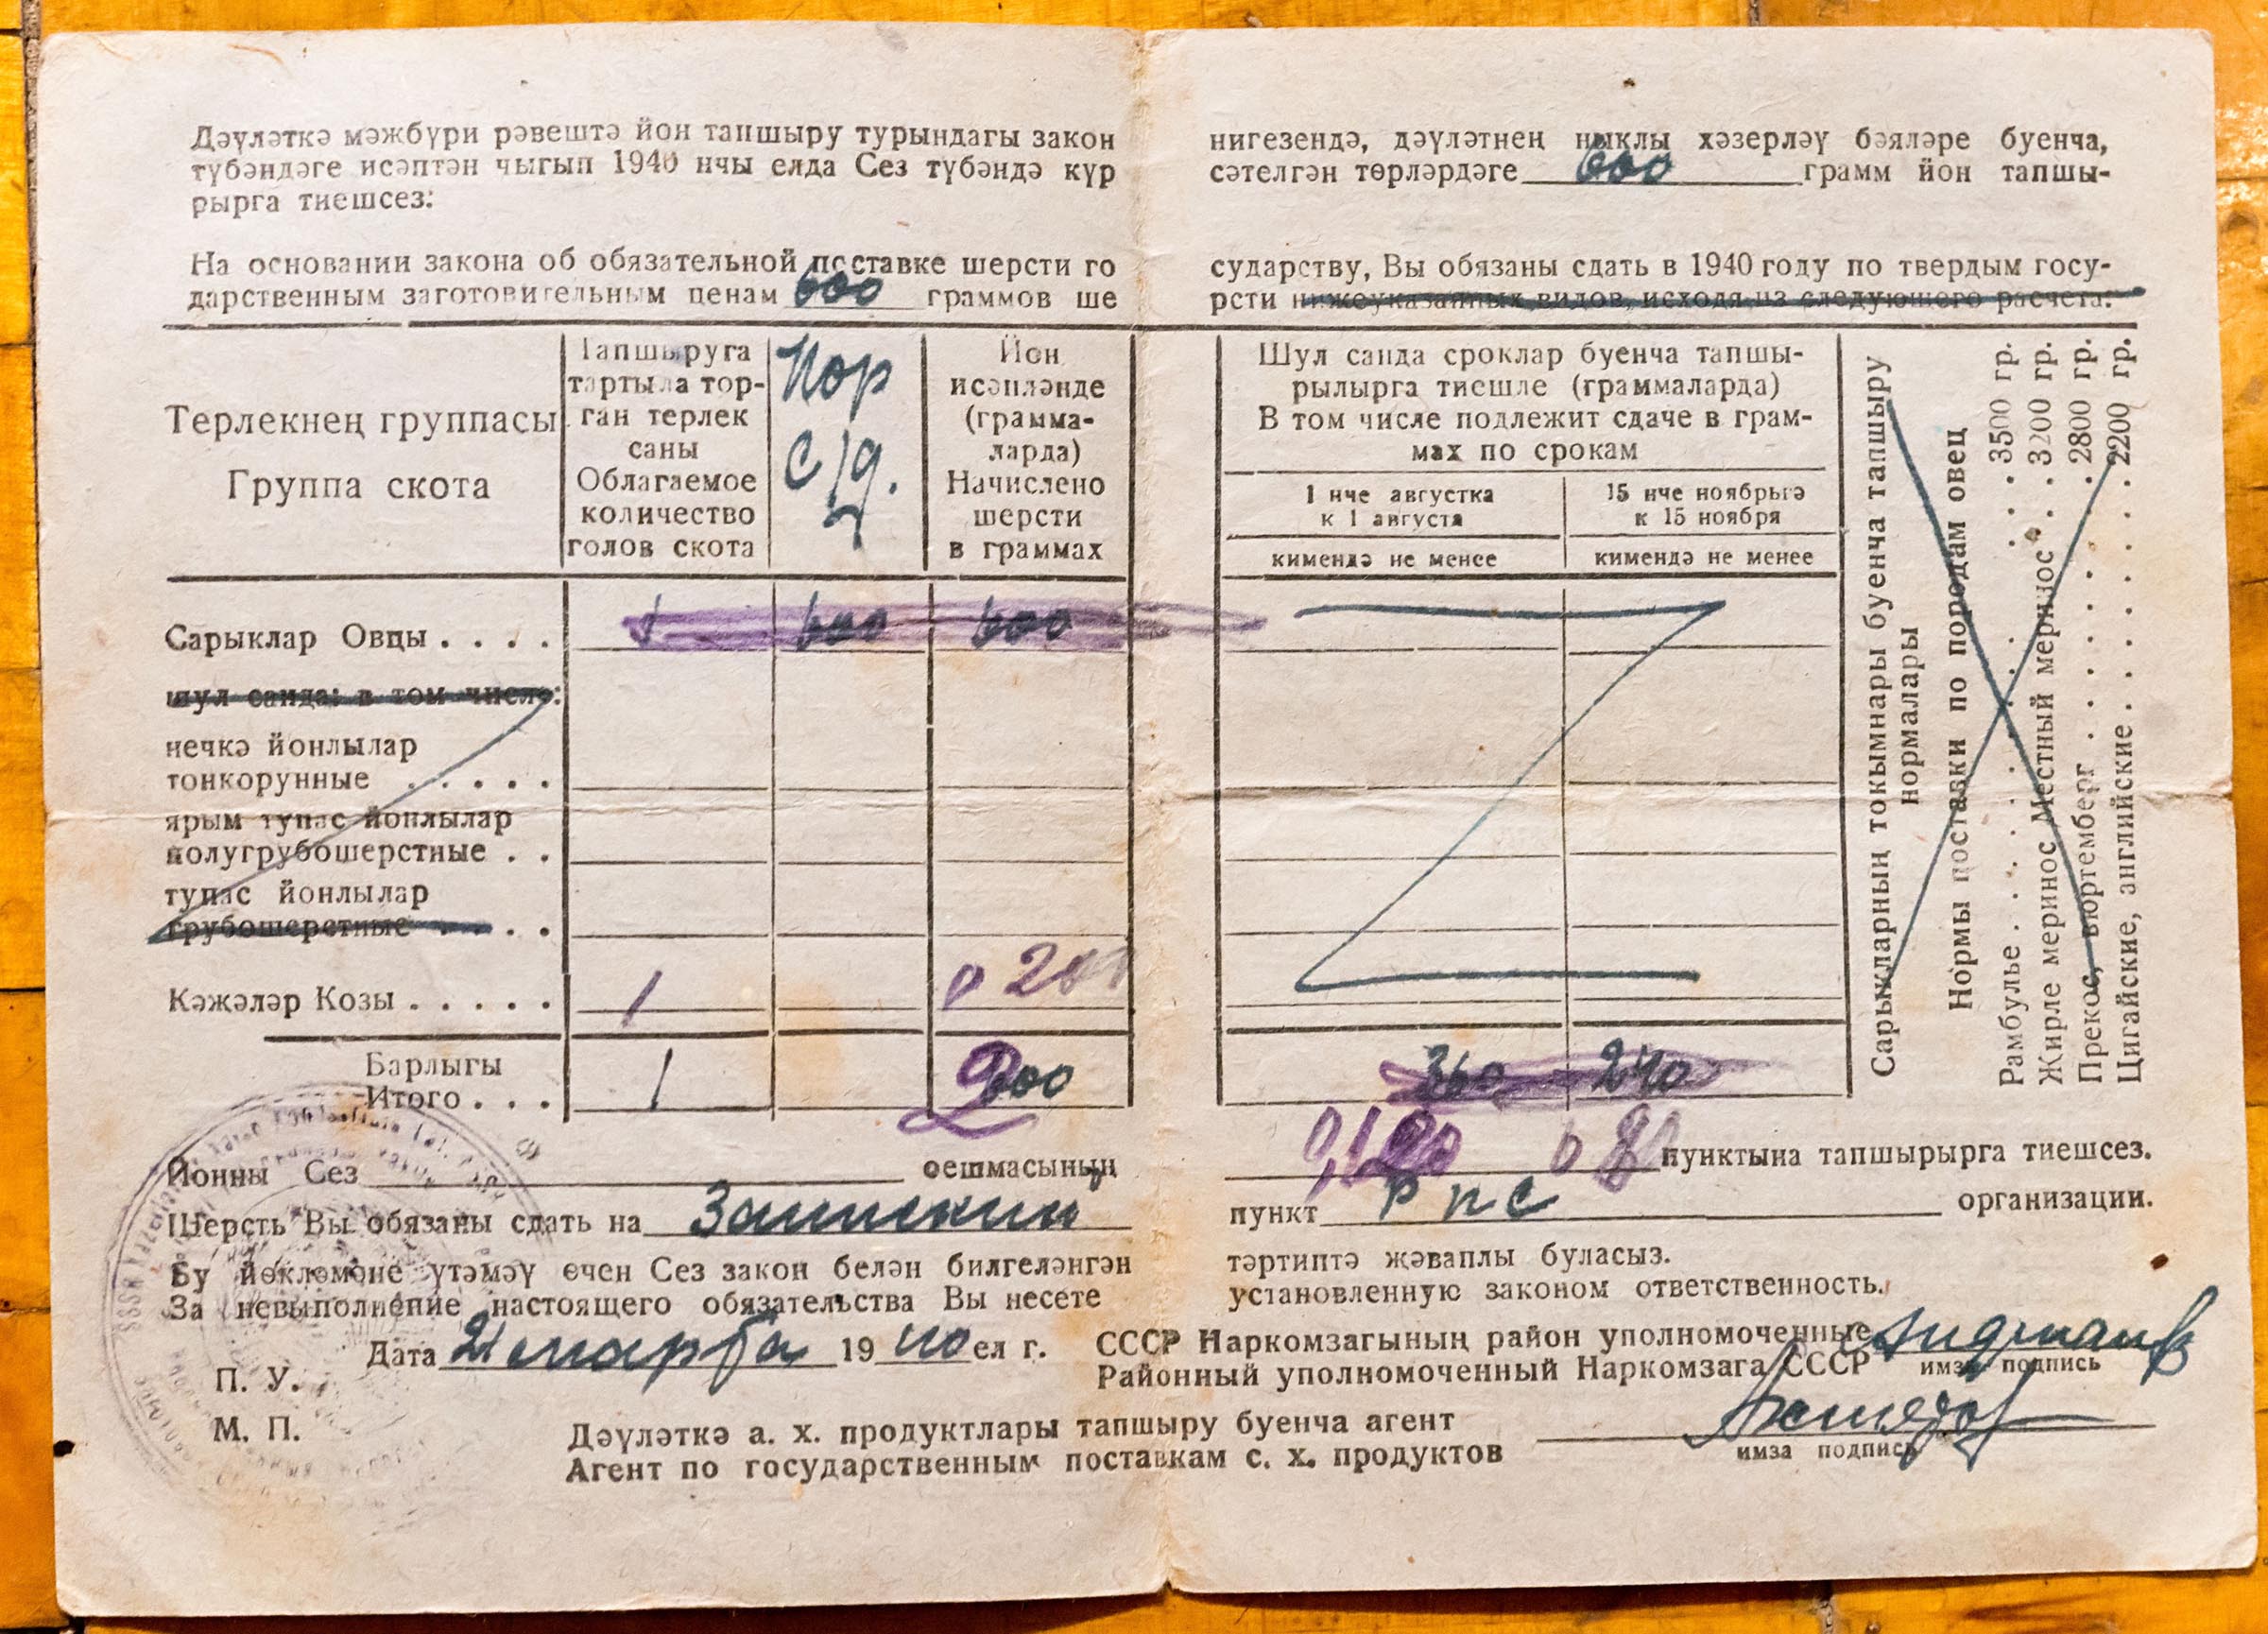 Дәүләткә мәжбүри рәвештә йон тапшыру турындагы закон
түбәндәге исәптән чыгып 1940 нчы елда Сез түбәндә күр
рырга тиешсез:
нигезендә, дәүләтнең ныклы хәзерләү бәяләре буенча,
сәтелгән төрләрдәге 600 грамм йон тапшы-
На основании закона об обязательной поставке шерсти го
дарственным заготовительным ценам 600 граммов ше
сударству, Вы обязаны сдать в 1940 году по твердым госу-
рсти нижеуказанных видов, исходя из следующего расчета:
Терлекнең группасы
Группа скота
Тапшыруга
тартыла тор-
ган терлек
саны
Облагаемое
количество
голов скота
Нор
с/д.
Йон
исәпләнде
(грамма-
ларда)
Начислено
шерсти
в граммах
Шул санда сроклар буенча тапшы-
рылырга тиешле (граммаларда)
В том числе подлежит сдаче в грам-
мах по срокам
1 нче августка
к 1 августа
15 нче ноябрьгә
к 15 ноября
кимендә не менее
кимендә не менее
Сарыклар Овцы . . . . 1 600 600
шул санда: в том числе:
нечкә йонлылар
тонкорунные . . . . .
ярым тупас йонлылар
полугрубошерстные . .
тупас йонлылар
грубошерстные . . . .
Кәҗәләр Козы . . . . . 1
Барлыгы
Итого . . . 1 200
360 240
Сарыкларның токымнары буенча тапшыру
нормалары
Нормы поставки по породам овец
Рамбулье . . . . . . . . 3500 гр.
Жирле меринос Местный меринос . . 3200 гр.
Прекос, вюртемберг . . . . . . . 2800 гр.
Цигайские, английские . . . . . . 2200 гр.
Йонны Сез оешмасының
пунктына тапшырырга тиешсез.
Шерсть Вы обязаны сдать на Заинский
пункт РПС организации.
Бу йөкләмәне үтәмәү өчен Сез закон белән билгеләнгән
тәртиптә җәваплы буласыз.
За невыполнение настоящего обязательства Вы несете
установленную законом ответственность.
Дата 21 марта 1940 ел г.
П. У.
М. П.
СССР Наркомзагының район уполномоченные
Районный уполномоченный Наркомзага СССР
имза подпись
Дәүләткә а. х. продуктлары тапшыру буенча агент
Агент по государственным поставкам с. х. продуктов
имза подпись